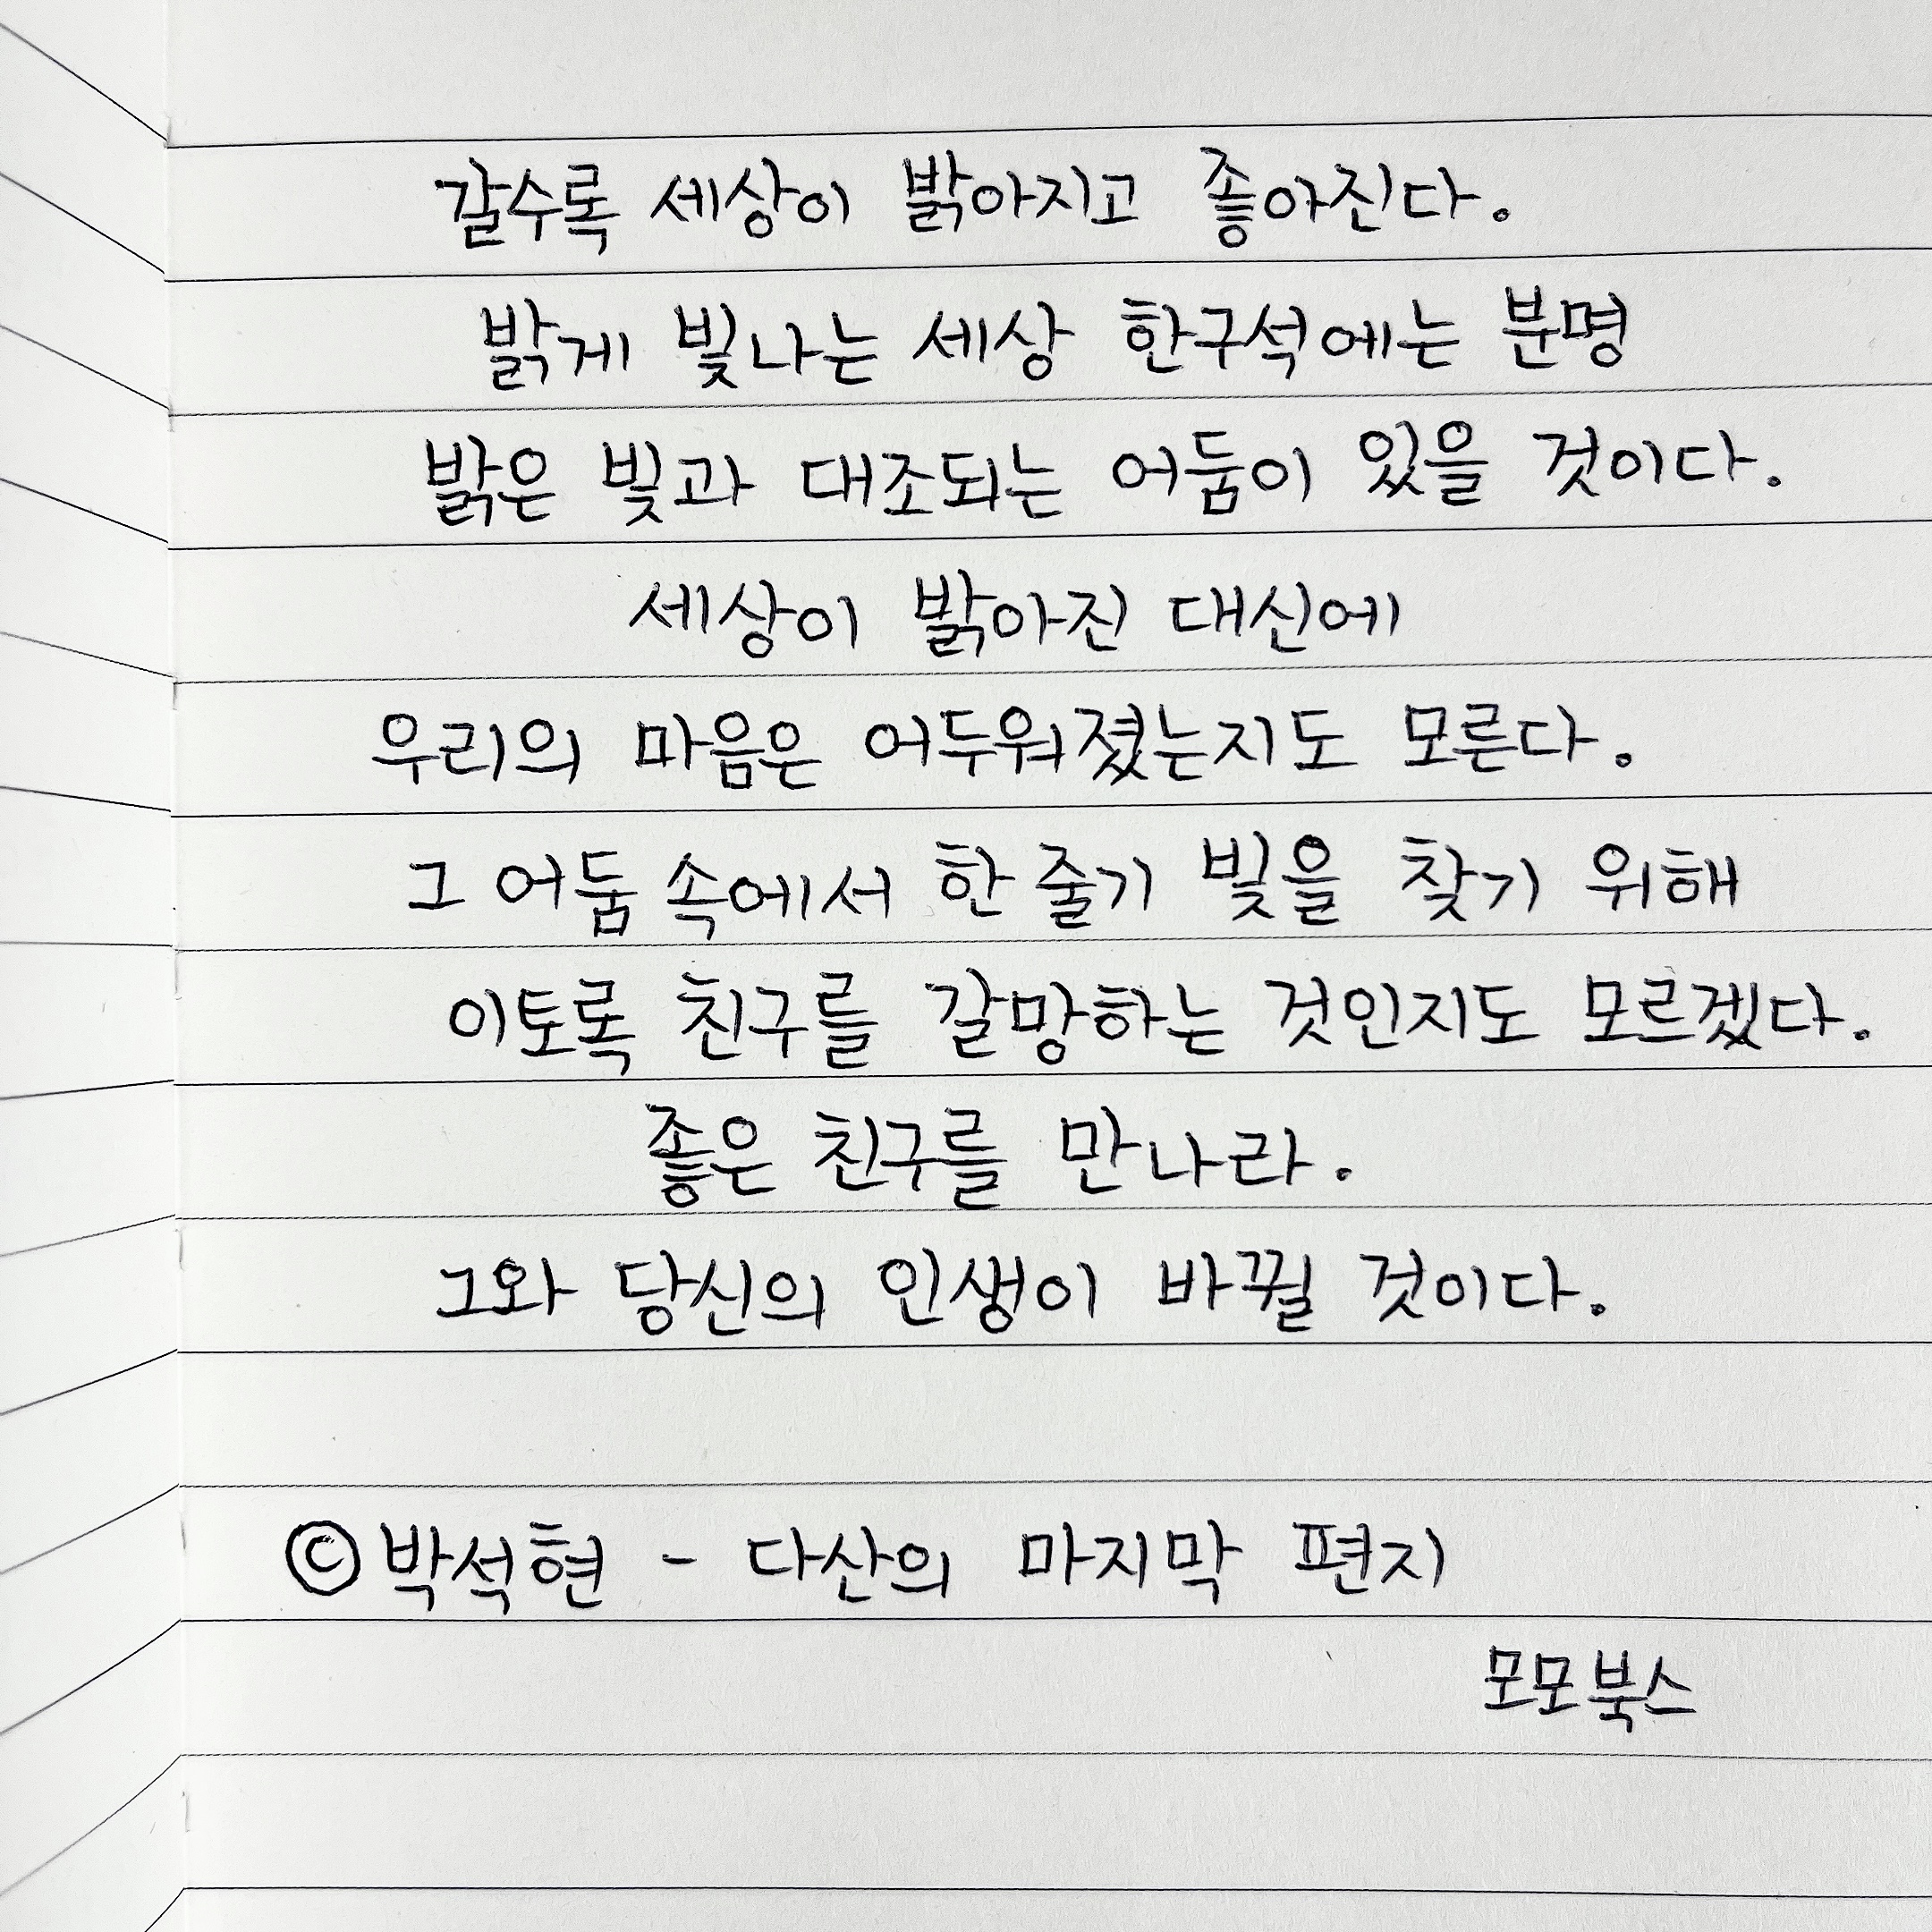 갈수록 세상이 밝아지고 좋아진다.
밝게 빛나는 세상 한구석에는 분명
밝은 빛과 대조되는 어둠이 있을 것이다.
세상이 밝아진 대신에
우리의 마음은 어두워졌는지도 모른다.
그 어둠 속에서 한 줄기 빛을 찾기 위해
이토록 친구를 갈망하는 것인지도 모르겠다.
좋은 친구를 만나라.
그와 당신의 인생이 바뀔 것이다.
©박석현 - 다산의 마지막 편지
모모북스